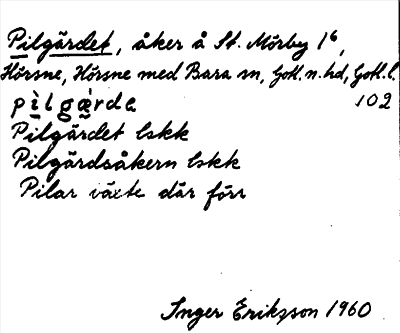 Pilgärdet, åker å St. Mörby 1⁶,
Hörsne, Hörsne med Bara sn, Gotl. n. hd, Gotl. l.
pìlgæ̀rda 102
Pilgärdet lskk
Pilgärdsåkern lskk
Pilar växte där förr
Inger Eriksson 1960